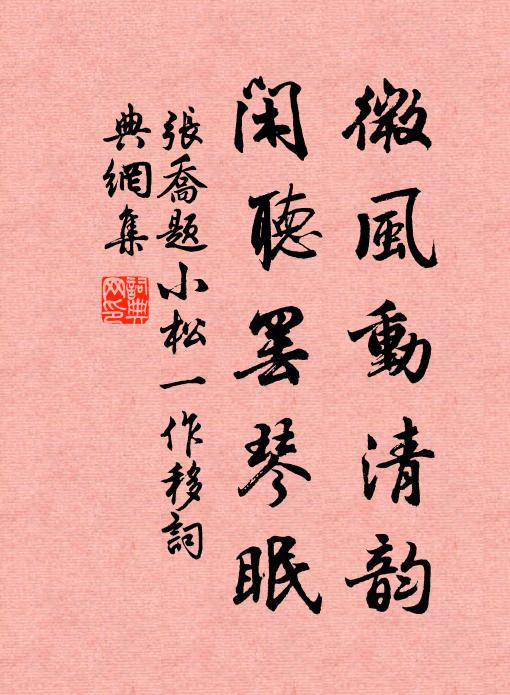 微風動清韵
閑聽罢琴眠
張喬題小松一作移詞
典網集
詞典
网印